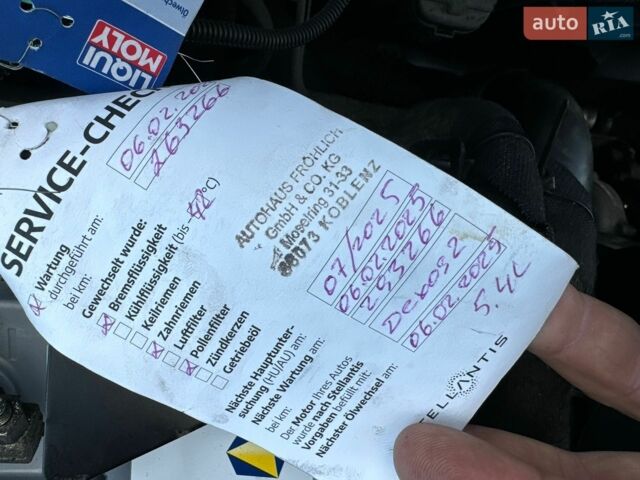 auto RIA.com
Ölwech
LIQUI MOLY
SERVICE-CHEC
Wartung
durchgeführt am: 06.02.202
bei km: 263266
Gewechselt wurde:
Bremsflüssigkeit
Kühlflüssigkeit (bis °C)
Keilriemen
Zahnriemen
Luftfilter
Pollenfilter
Zündkerzen
Getriebeöl
AUTOHAUS FRÖHLICH
GmbH & CO. KG
Moselring 31-33
56073 KOBLENZ
Nächste Hauptunter-
suchung (HU/AU) am: 07/2025
Nächste Wartung am: 06.02.2025
bei km: 293266
Der Motor Ihres Autos
wurde nach Stellantis
Vorgaben befüllt mit: Dexos 2
Nächster Ölwechsel am: 06.02.2025
5.4L
STELLANTIS